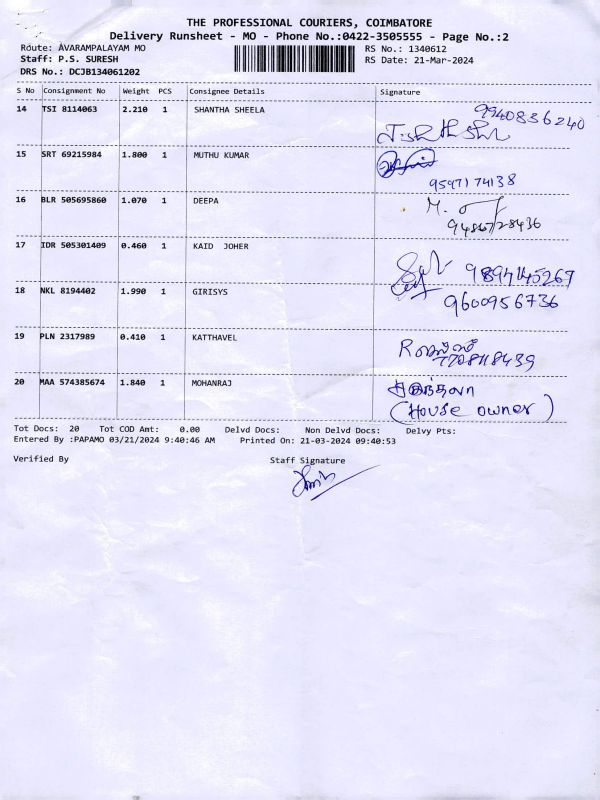 THE PROFESSIONAL COURIERS, COIMBATORE
Delivery Runsheet - MO - Phone No.:0422-3505555 - Page No.:2
Route: AVARAMPALAYAM MO RS No.: 1340612
Staff: P.S. SURESH RS Date: 21-Mar-2024
DRS No.: DCJB134061202
S No Consignment No Weight PCS Consignee Details Signature
14 TSI 8114063 2.210 1 SHANTHA SHEELA 9940836240
15 SRT 69215984 1.800 1 MUTHU KUMAR
9597174138
16 BLR 505695860 1.070 1 DEEPA M.
9486728436
17 IDR 505301409 0.460 1 KAID JOHER
9894145269
18 NKL 8194402 1.990 1 GIRISYS 9600956736
19 PLN 2317989 0.410 1 KATTHAVEL
7708118439
20 MAA 574385674 1.840 1 MOHANRAJ
(House owner)
Tot Docs: 20 Tot COD Amt: 0.00 Delvd Docs: Non Delvd Docs: Delvy Pts:
Entered By :PAPAMO 03/21/2024 9:40:46 AM Printed On: 21-03-2024 09:40:53
Verified By Staff Signature